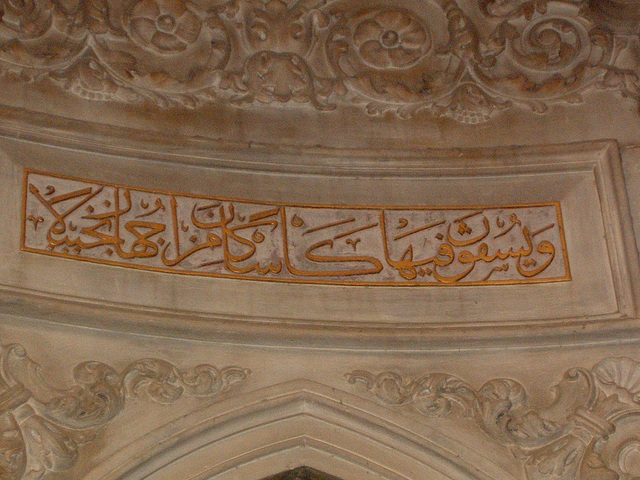 ويسقون فيها كأسا كان مزاجها زنجبيلا